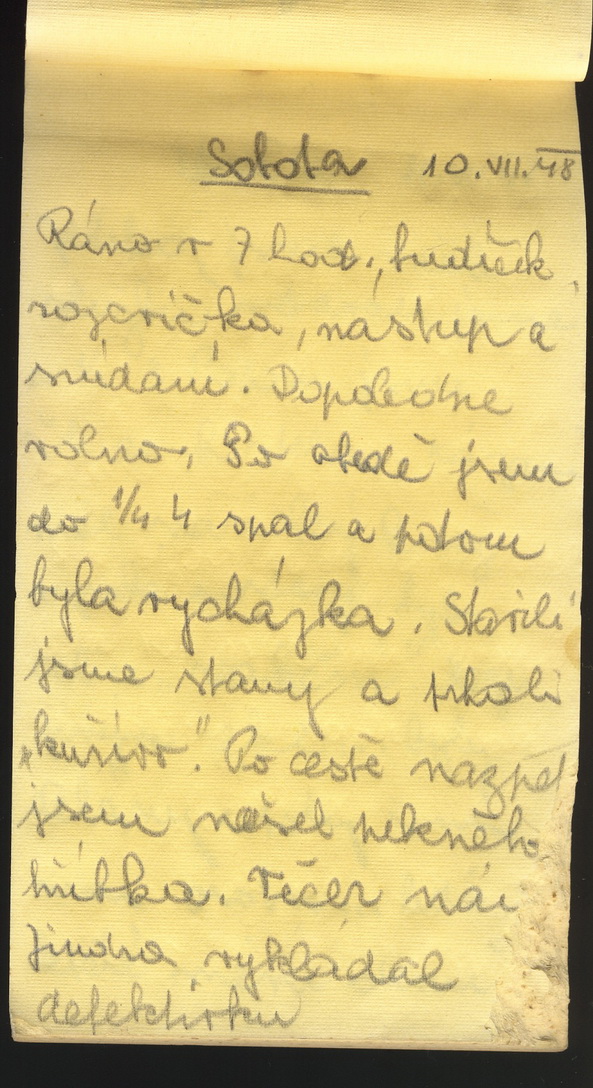 Sobota 10.VII.48
Ráno v 7 hod., budíček,
rozcvička, nástup a
snídaní. Dopoledne
volno. Po obedě jsem
do 1/4 4 spal a potom
byla vycházka. Stavili
jsme stany a
„kuřivo". Po cestě nazpět
jsem našel pekného
hříbka. Večer nám
Jindra vykládal
detektivku